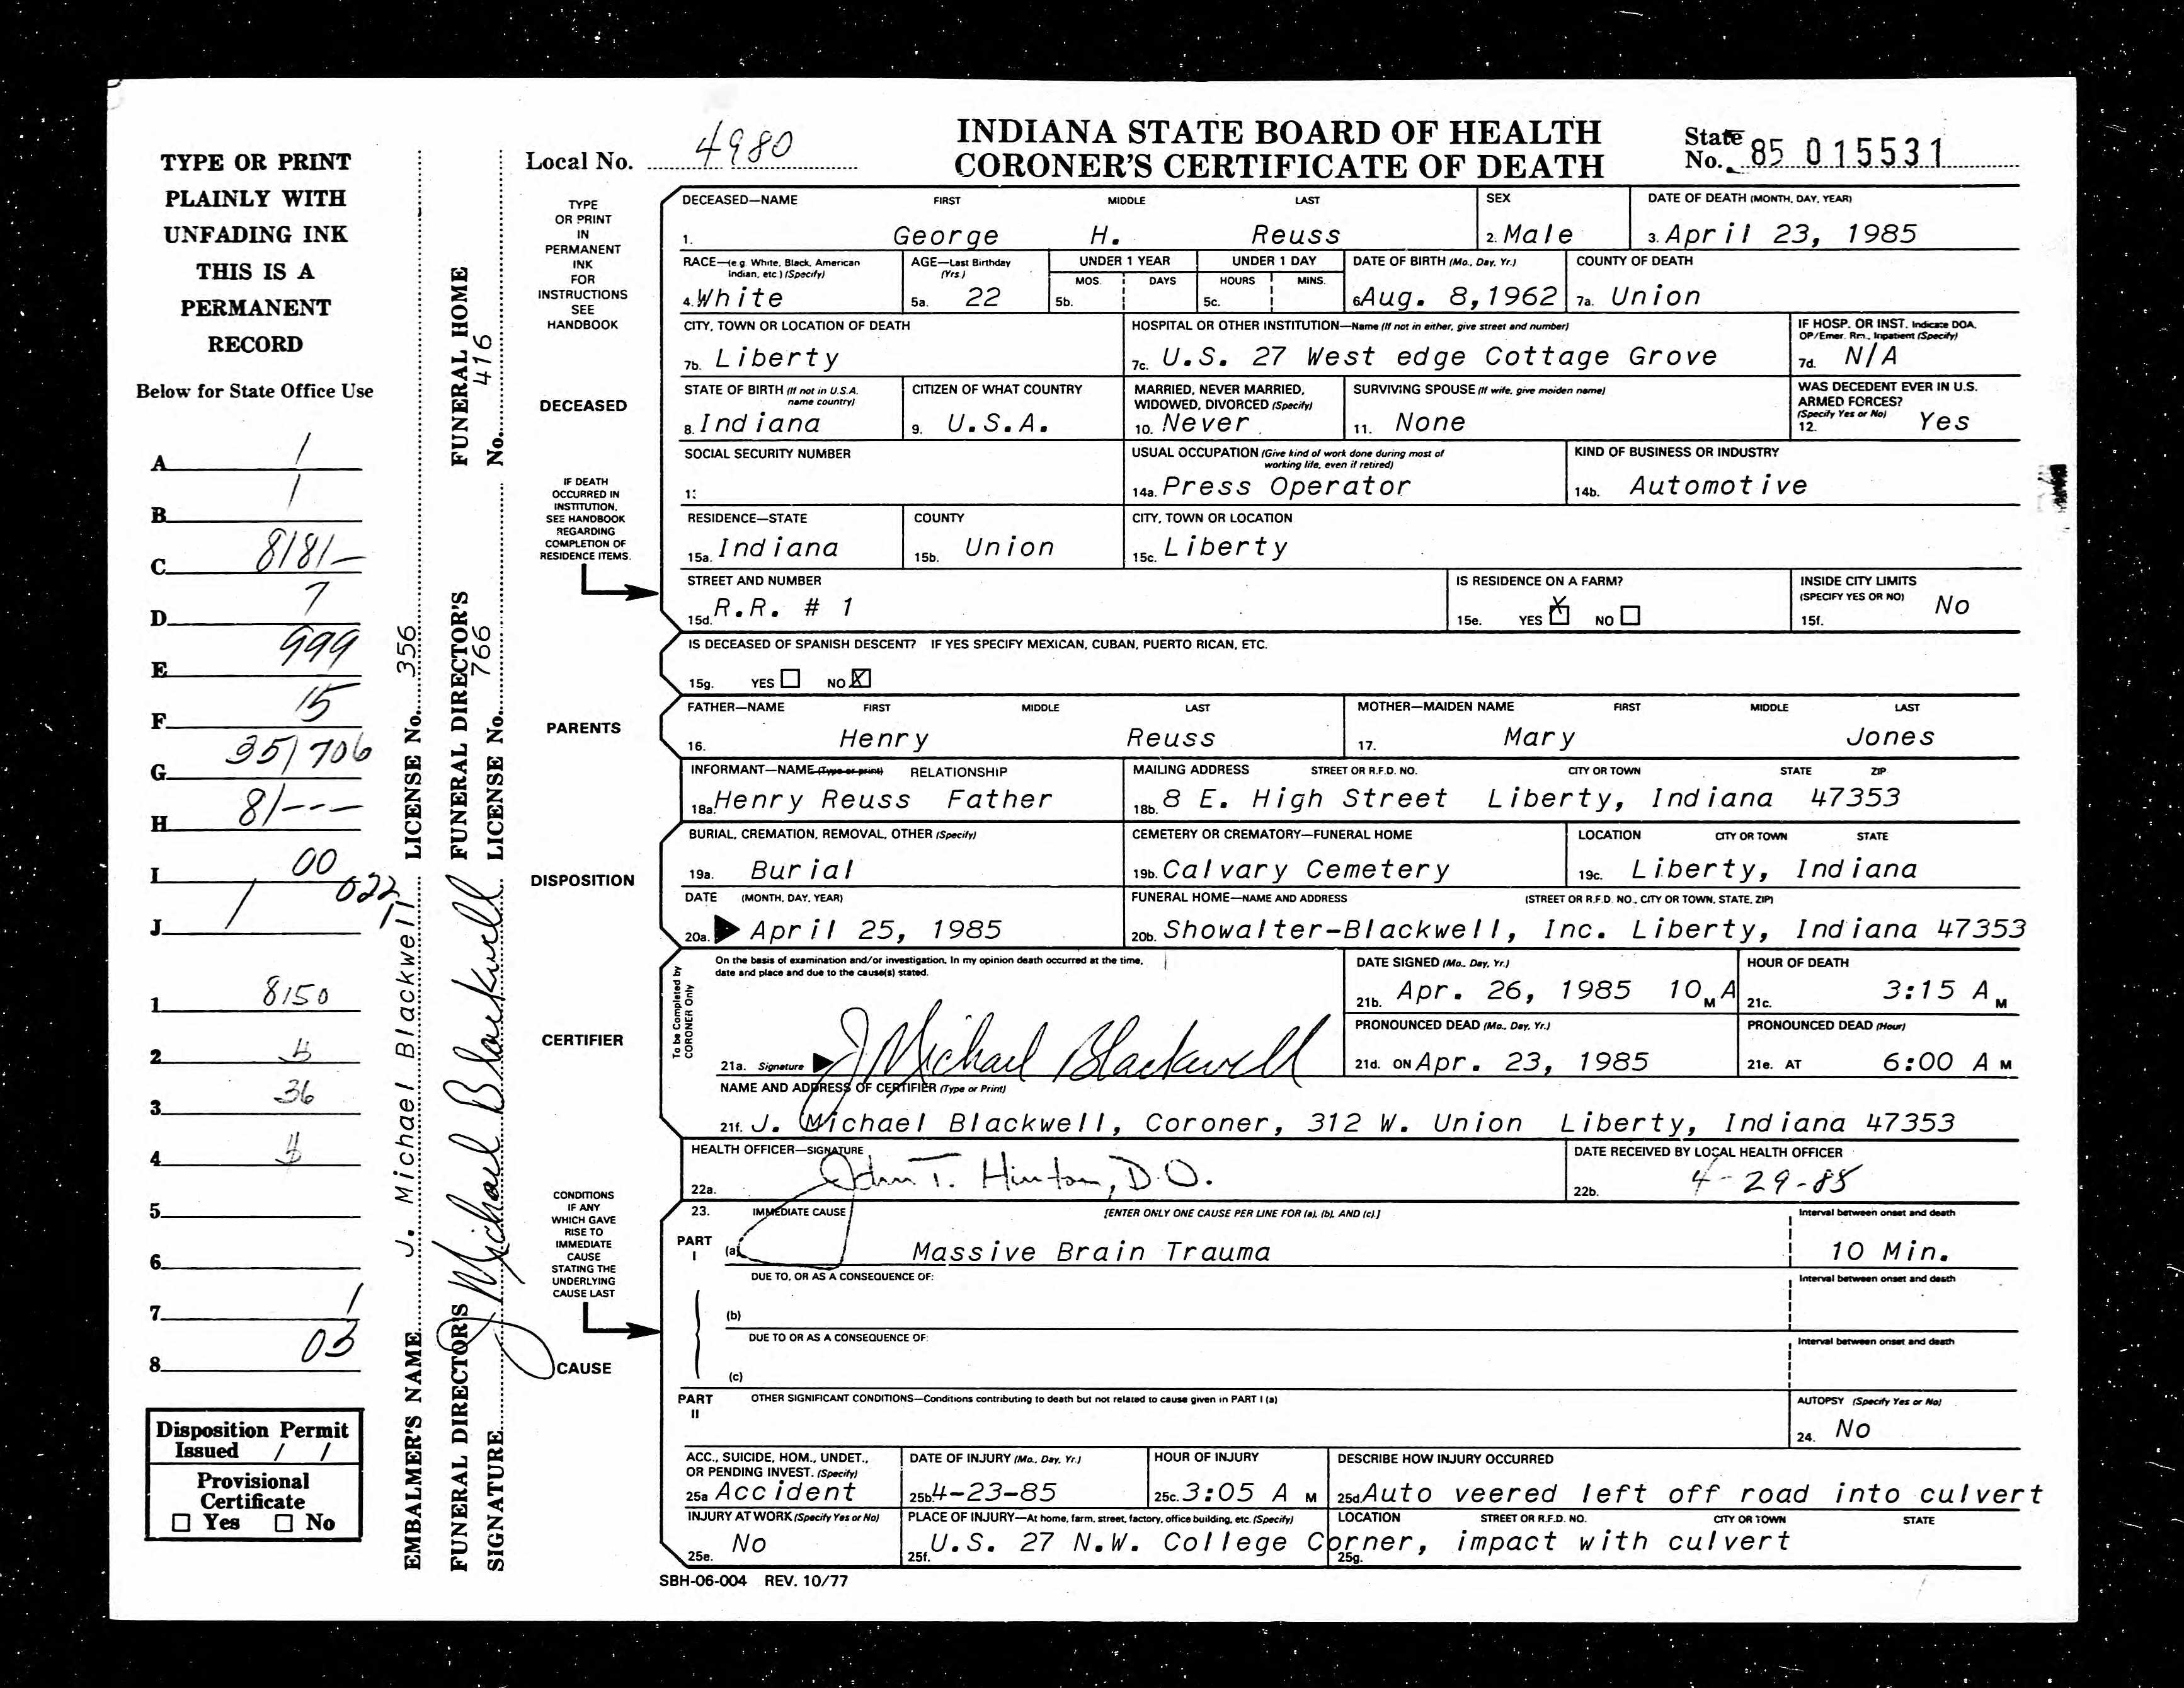 INDIANA STATE BOARD OF HEALTH
CORONER'S CERTIFICATE OF DEATH
Local No. 4980
State No. 85 015531
TYPE OR PRINT
PLAINLY WITH
UNFADING INK
THIS IS A
PERMANENT
RECORD
Below for State Office Use
A 1
B 1
C 8181-
D 7
E 999
F 15
G 351 706
H 81---
I 00
022
1
J 1
1 8150
2 4
3 36
4 4
5
6
7 1
8 03
Disposition Permit
Issued / /
Provisional
Certificate
☐ Yes ☐ No
EMBALMER'S NAME J. Michael Blackwell LICENSE No. 356
FUNERAL DIRECTOR'S SIGNATURE Michael Blackwell FUNERAL DIRECTOR'S LICENSE No. 766
FUNERAL HOME No. 416
TYPE
OR PRINT
IN
PERMANENT
INK
FOR
INSTRUCTIONS
SEE
HANDBOOK
DECEASED
IF DEATH
OCCURRED IN
INSTITUTION,
SEE HANDBOOK
REGARDING
COMPLETION OF
RESIDENCE ITEMS.
PARENTS
DISPOSITION
CERTIFIER
CONDITIONS
IF ANY
WHICH GAVE
RISE TO
IMMEDIATE
CAUSE
STATING THE
UNDERLYING
CAUSE LAST
CAUSE
DECEASED—NAME FIRST MIDDLE LAST SEX DATE OF DEATH (MONTH, DAY, YEAR)
1. George H. Reuss 2. Male 3. April 23, 1985
RACE—(e.g. White, Black, American Indian, etc.) (Specify) AGE—Last Birthday (Yrs.) UNDER 1 YEAR UNDER 1 DAY DATE OF BIRTH (Mo., Day, Yr.) COUNTY OF DEATH
MOS. DAYS HOURS MINS.
4. White 5a. 22 5b. 5c. 6 Aug. 8,1962 7a. Union
CITY, TOWN OR LOCATION OF DEATH HOSPITAL OR OTHER INSTITUTION—Name (If not in either, give street and number) IF HOSP. OR INST. Indicate DOA, OP/Emer. Rm., Inpatient (Specify)
7b. Liberty 7c. U.S. 27 West edge Cottage Grove 7d. N/A
STATE OF BIRTH (If not in U.S.A. name country) CITIZEN OF WHAT COUNTRY MARRIED, NEVER MARRIED, WIDOWED, DIVORCED (Specify) SURVIVING SPOUSE (If wife, give maiden name) WAS DECEDENT EVER IN U.S. ARMED FORCES? (Specify Yes or No)
8. Indiana 9. U.S.A. 10. Never 11. None 12. Yes
SOCIAL SECURITY NUMBER USUAL OCCUPATION (Give kind of work done during most of working life, even if retired) KIND OF BUSINESS OR INDUSTRY
14a. Press Operator 14b. Automotive
RESIDENCE—STATE COUNTY CITY, TOWN OR LOCATION
15a. Indiana 15b. Union 15c. Liberty
STREET AND NUMBER IS RESIDENCE ON A FARM? INSIDE CITY LIMITS (SPECIFY YES OR NO)
15d. R.R. # 1 15e. YES ☒ NO ☐ 15f. No
IS DECEASED OF SPANISH DESCENT? IF YES SPECIFY MEXICAN, CUBAN, PUERTO RICAN, ETC.
15g. YES ☐ NO ☒
FATHER—NAME FIRST MIDDLE LAST MOTHER—MAIDEN NAME FIRST MIDDLE LAST
16. Henry Reuss 17. Mary Jones
INFORMANT—NAME (Type or print) RELATIONSHIP MAILING ADDRESS STREET OR R.F.D. NO. CITY OR TOWN STATE ZIP
18a Henry Reuss Father 18b. 8 E. High Street Liberty, Indiana 47353
BURIAL, CREMATION, REMOVAL, OTHER (Specify) CEMETERY OR CREMATORY—FUNERAL HOME LOCATION CITY OR TOWN STATE
19a. Burial 19b. Calvary Cemetery 19c. Liberty, Indiana
DATE (MONTH, DAY, YEAR) FUNERAL HOME—NAME AND ADDRESS (STREET OR R.F.D. NO., CITY OR TOWN, STATE, ZIP)
20a. April 25, 1985 20b. Showalter-Blackwell, Inc. Liberty, Indiana 47353
To be Completed by CORONER Only
On the basis of examination and/or investigation, In my opinion death occurred at the time, date and place and due to the cause(s) stated.
21a. Signature J Michael Blackwell
DATE SIGNED (Mo., Day, Yr.) HOUR OF DEATH
21b. Apr. 26, 1985 10 M A 21c. 3:15 A M
PRONOUNCED DEAD (Mo., Day, Yr.) PRONOUNCED DEAD (Hour)
21d. ON Apr. 23, 1985 21e. AT 6:00 A M
NAME AND ADDRESS OF CERTIFIER (Type or Print)
21f. J. Michael Blackwell, Coroner, 312 W. Union Liberty, Indiana 47353
HEALTH OFFICER—SIGNATURE DATE RECEIVED BY LOCAL HEALTH OFFICER
22a. John T. Hinton, D.O. 22b. 4-29-85
23. IMMEDIATE CAUSE [ENTER ONLY ONE CAUSE PER LINE FOR (a), (b), AND (c).] Interval between onset and death
PART I (a) Massive Brain Trauma 10 Min.
DUE TO, OR AS A CONSEQUENCE OF: Interval between onset and death
(b)
DUE TO OR AS A CONSEQUENCE OF: Interval between onset and death
(c)
PART II OTHER SIGNIFICANT CONDITIONS—Conditions contributing to death but not related to cause given in PART I (a) AUTOPSY (Specify Yes or No)
24. No
ACC., SUICIDE, HOM., UNDET., OR PENDING INVEST. (Specify) DATE OF INJURY (Mo., Day, Yr.) HOUR OF INJURY DESCRIBE HOW INJURY OCCURRED
25a Accident 25b. 4-23-85 25c. 3:05 A M 25d Auto veered left off road into culvert
INJURY AT WORK (Specify Yes or No) PLACE OF INJURY—At home, farm, street, factory, office building, etc. (Specify) LOCATION STREET OR R.F.D. NO. CITY OR TOWN STATE
25e. No 25f. U.S. 27 N.W. College Corner, impact with culvert 25g.
SBH-06-004 REV. 10/77